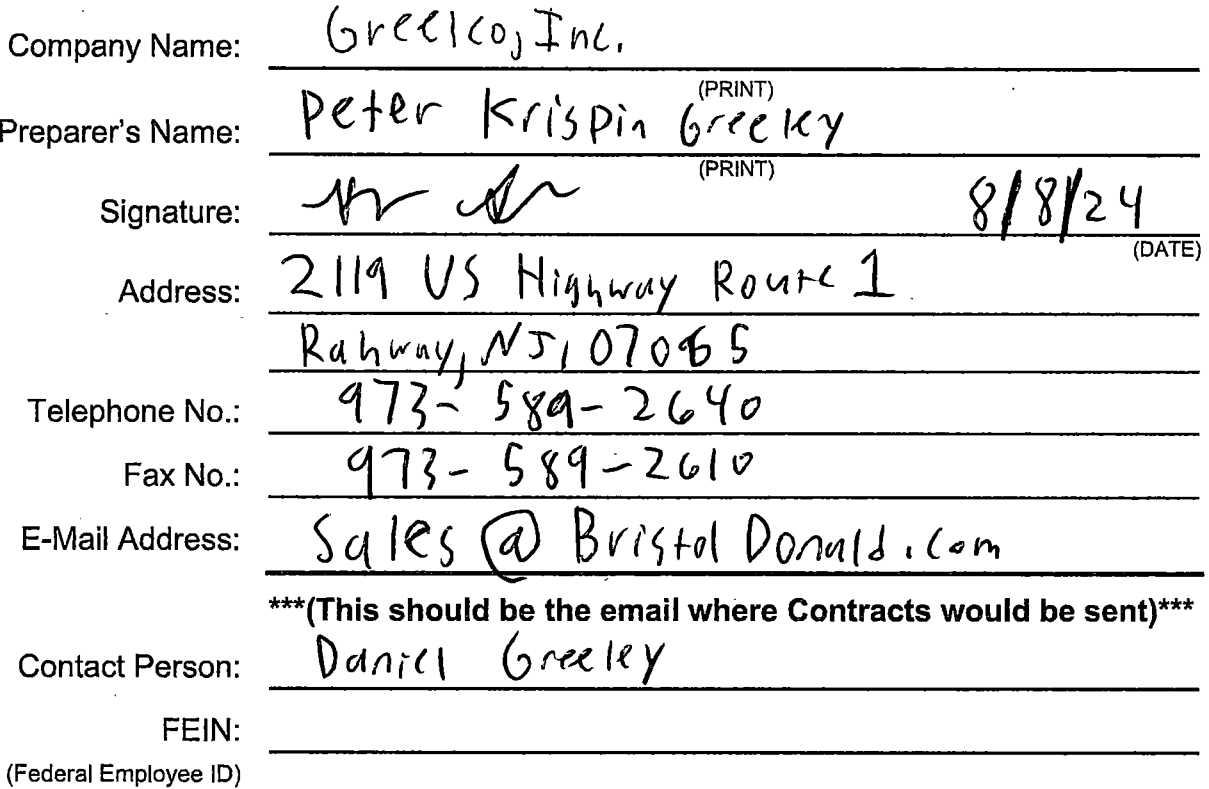 Company Name: Greelco, Inc.
(PRINT)
Preparer's Name: Peter Krispin Greeley
(PRINT)
Signature: 8/8/24
(DATE)
Address: 2119 US Highway Route 1
Rahway, NJ, 07065
Telephone No.: 973-589-2640
Fax No.: 973-589-2610
E-Mail Address: Sales@BristolDonald.com
***(This should be the email where Contracts would be sent)***
Contact Person: Daniel Greeley
FEIN:
(Federal Employee ID)